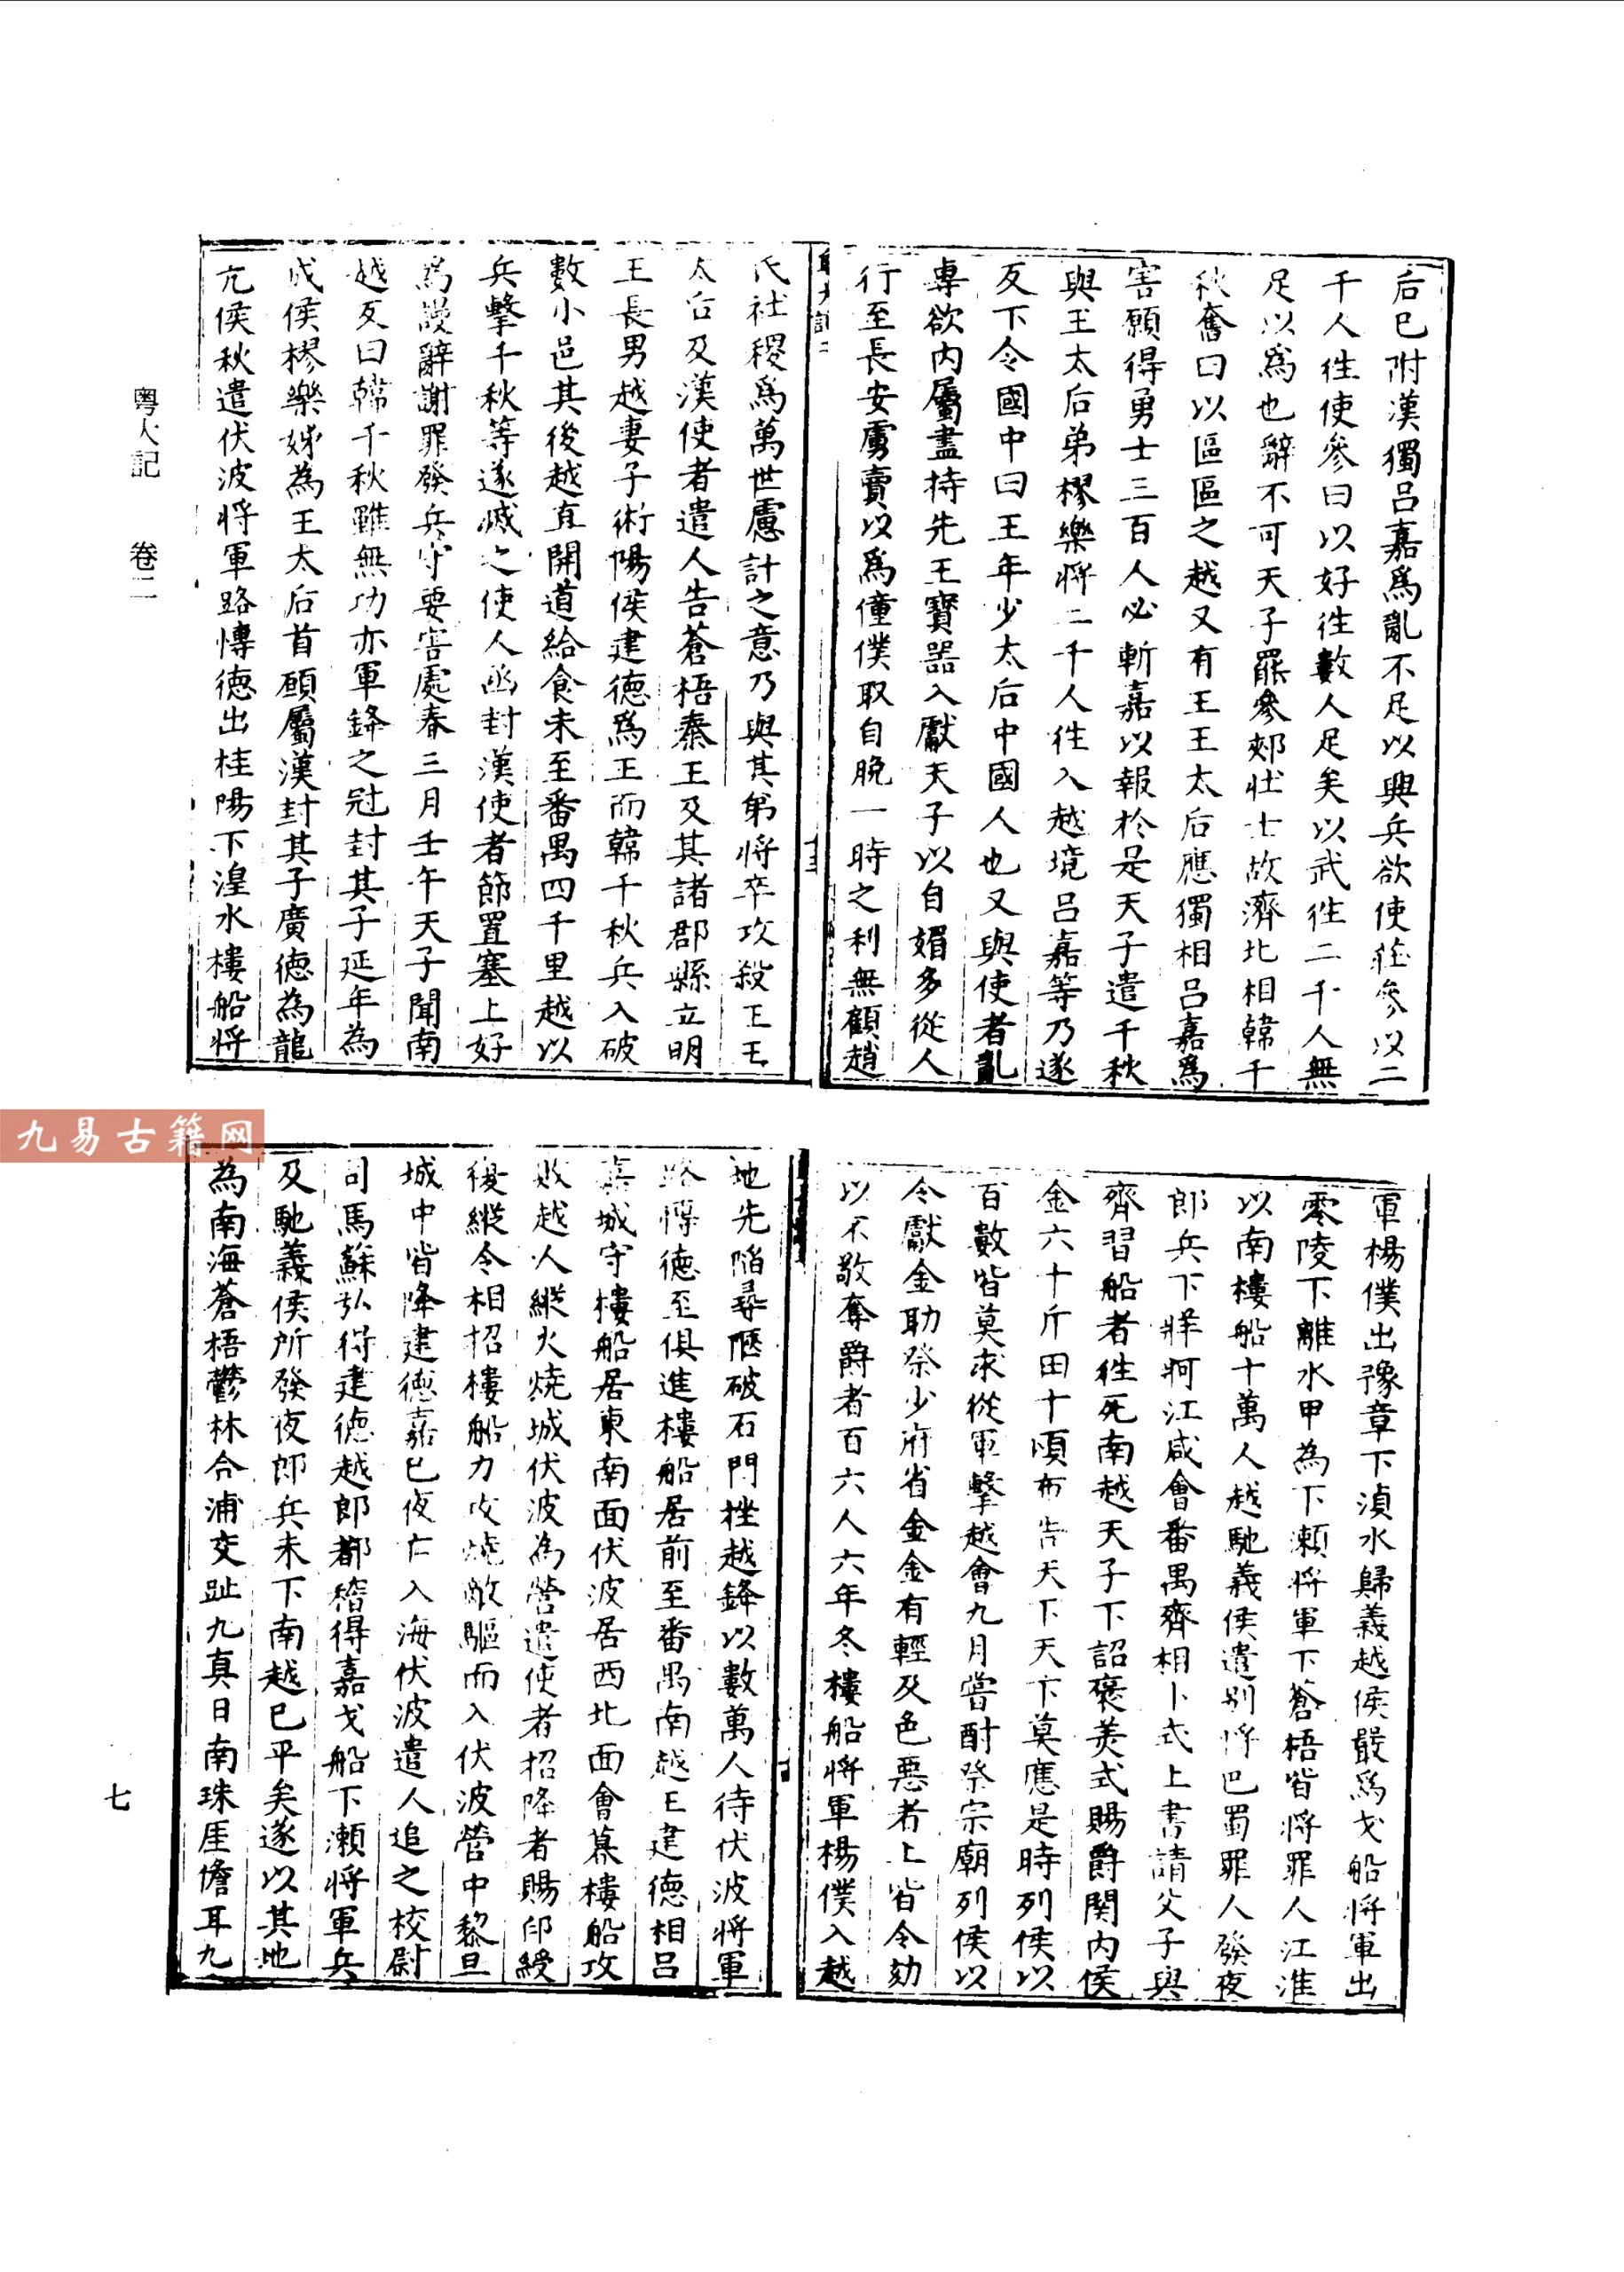 后已附漢獨吕嘉爲亂不足以興兵欲使莊參以二
千人往使參曰以好往數人足矣以武往二千人無
足以爲也辭不可天子罷參郟壮士故濟北相韓千
秋奮曰以區區之越又有王王太后應獨相吕嘉爲
害願得勇士三百人必斬嘉以報於是天子遣千秋
與王太后弟樛樂將二千人往入越境吕嘉等乃遂
反下令國中曰王年少太后中國人也又與使者亂
專欲内屬盡持先王寶器入獻天子以自媚多從人
行至長安虜賣以爲僮僕取自脱一時之利無顧趙
氏社稷爲萬世慮計之意乃與其弟將卒攻殺王王
太后及漢使者遣人告蒼梧秦王及其諸郡縣立明
王長男越妻子術陽侯建德爲王而韓千秋兵入破
數小邑其後越直開道給食未至番禺四千里越以
兵擊千秋等遂滅之使人函封漢使者節置塞上好
爲謾辭謝罪發兵守要害處春三月壬午天子聞南
越反曰韓千秋雖無功亦軍鋒之冠封其子延年為
成侯樛樂姊為王太后首願屬漢封其子廣德為龍
亢侯秋遣伏波將軍路愽德出桂陽下湟水樓船將
軍楊僕出豫章下湞水歸義越侯嚴爲戈船將軍出
零陵下離水甲為下瀨將軍下蒼梧皆將罪人江淮
以南樓船十萬人越馳義侯遣別將巴蜀罪人發夜
郎兵下牂牁江咸會番禺齊相卜式上書請父子與
齊習船者往死南越天子下詔褒美式賜爵関内侯
金六十斤田十頃布告天下天下莫應是時列侯以
百數皆莫求從軍擊越會九月嘗酎祭宗廟列侯以
令獻金助祭少府省金金有輕及色惡者上皆令劾
以不敬奪爵者百六人六年冬樓船將軍楊僕入越
地先陷尋陿破石門挫越鋒以數萬人待伏波將軍
路愽德至俱進樓船居前至番禺南越王建德相吕
嘉城守樓船居東南面伏波居西北面會暮樓船攻
敗越人縱火燒城伏波為營遣使者招降者賜印綬
復縱令相招樓船力攻燒敵驅而入伏波營中黎旦
城中皆降建德嘉已夜亡入海伏波遣人追之校尉
司馬蘇弘得建德越郎都稽得嘉戈船下瀬將軍兵
及馳義侯所發夜郎兵未下南越已平矣遂以其地
為南海蒼梧鬱林合浦交趾九真日南珠厓儋耳九
粵大記 卷二
七
九易古籍网